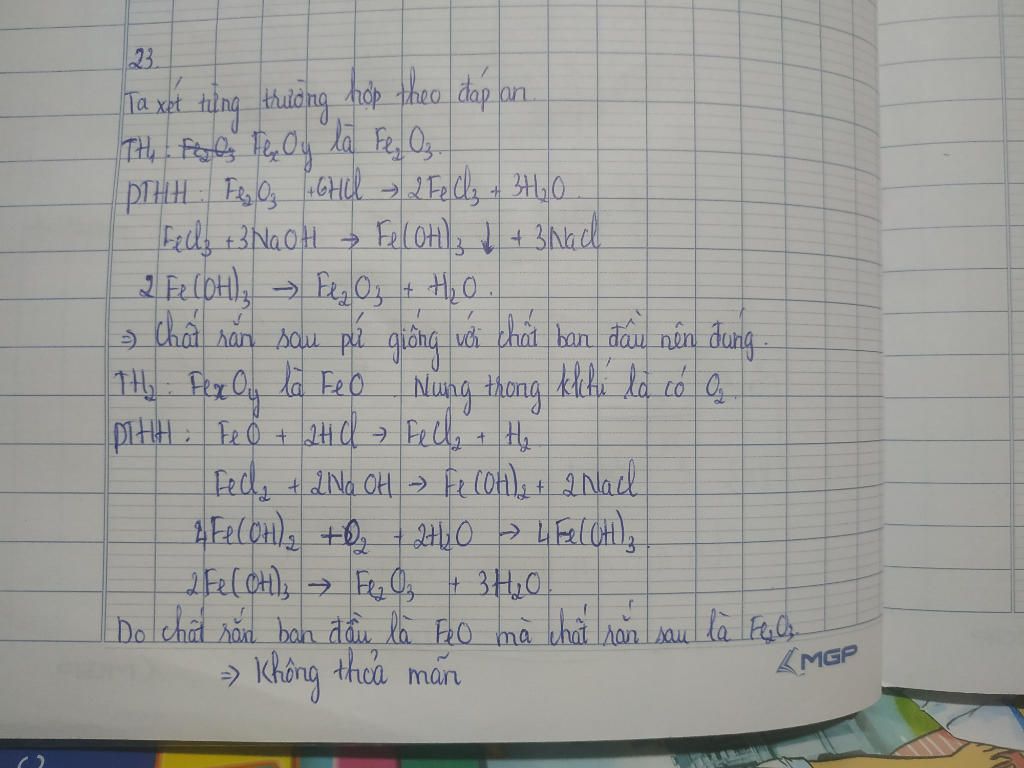 23.
Ta xét từng trường hợp theo đáp an.
TH1: Fe2O3 FexOy là Fe2O3.
PTHH: Fe2O3 + 6HCl → 2FeCl3 + 3H2O.
FeCl3 + 3NaOH → Fe(OH)3 ↓ + 3NaCl
2Fe(OH)3 → Fe2O3 + H2O.
⇒ Chất rắn sau pứ giống với chất ban đầu nên đúng.
TH2: FexOy là FeO. Nung trong kkhí là có O2.
PTHH: FeO + 2HCl → FeCl2 + H2
FeCl2 + 2NaOH → Fe(OH)2 + 2NaCl
4Fe(OH)2 + O2 + 2H2O → 4Fe(OH)3.
2Fe(OH)3 → Fe2O3 + 3H2O.
Do chất rắn ban đầu là FeO mà chất rắn sau là Fe2O3.
⇒ Không thỏa mãn
MGP